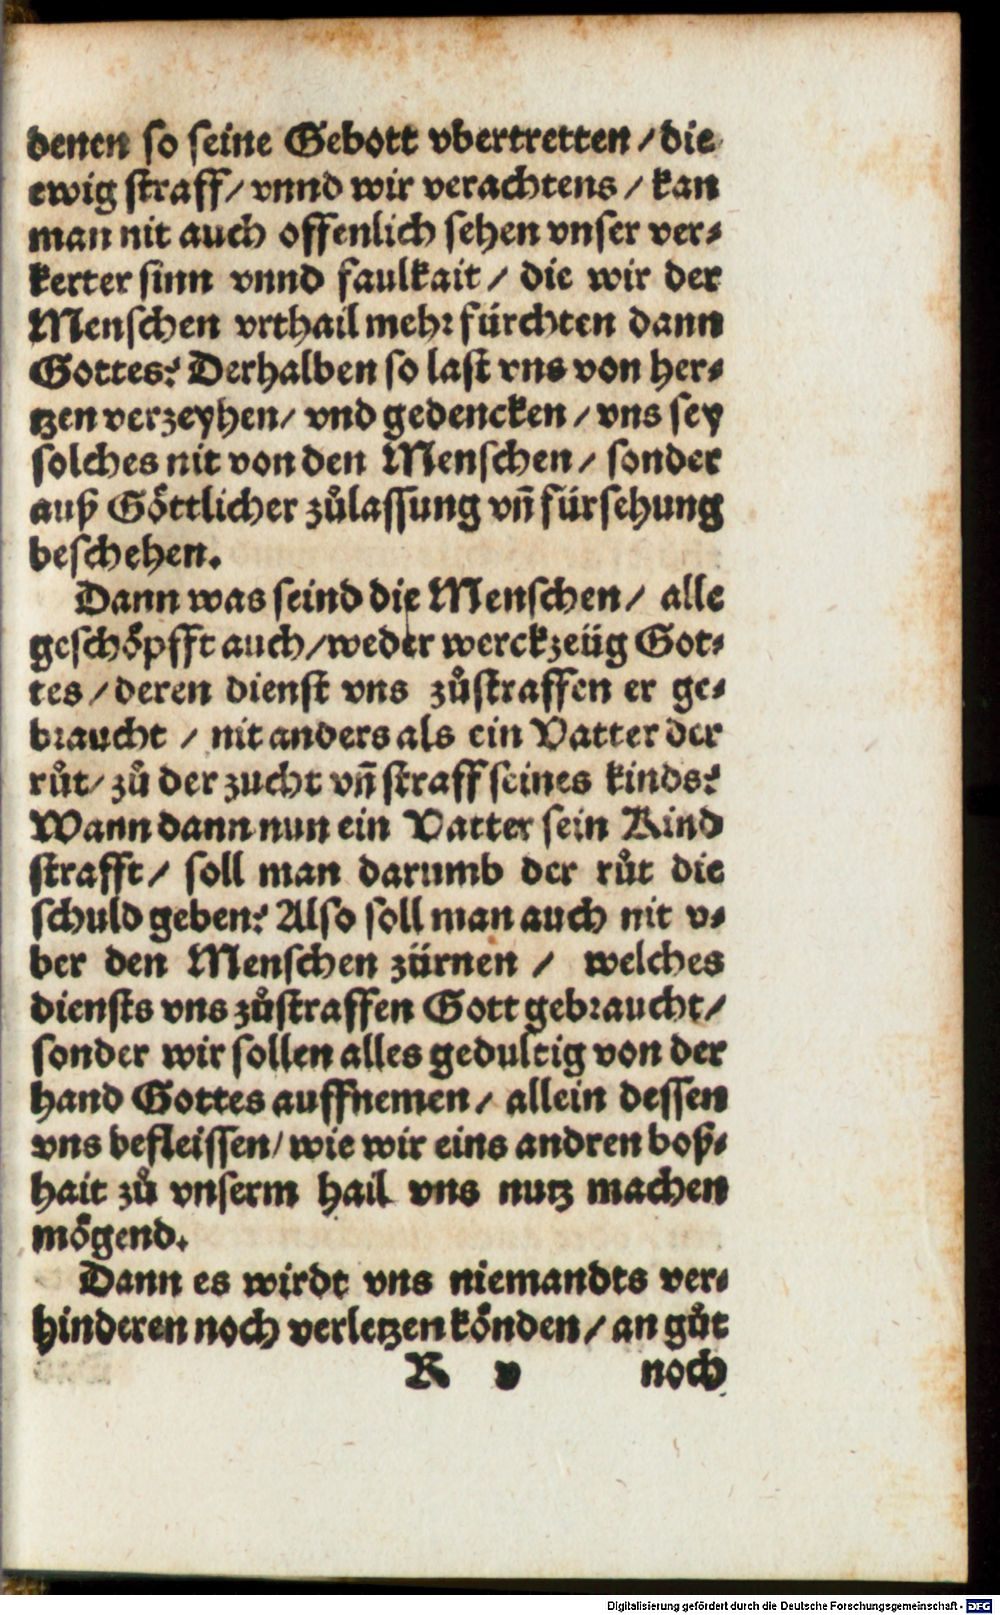 denen so seine Gebott vbertretten / die
ewig straff / vnnd wir verachtens / kan
man nit auch offenlich sehen vnser ver⸗
kerter sinn vnnd faulkait / die wir der
Menschen vrthail mehr fürchten dann
Gottes? Derhalben so last vns von her⸗
tzen verzeyhen / vnd gedencken / vns sey
solches nit von den Menschen / sonder
auß Göttlicher zůlassung vñ fürsehung
beschehen.
Dann was seind die Menschen / alle
geschöpfft auch / weder werckzeüg Got⸗
tes / deren dienst vns zůstraffen er ge⸗
braucht / nit anders als ein Vatter der
růt / zů der zucht vñ straff seines kinds?
Wann dann nun ein Vatter sein Kind
strafft / soll man darumb der růt die
schuld geben? Also soll man auch nit v⸗
ber den Menschen zürnen / welches
diensts vns zůstraffen Gott gebraucht /
sonder wir sollen alles gedultig von der
hand Gottes auffnemen / allein dessen
vns befleissen / wie wir eins andren boß⸗
hait zů vnserm hail vns nutz machen
mögend.
Dann es wirdt vns niemandts ver⸗
hinderen noch verletzen könden / an gůt
K v noch
Digitalisierung gefördert durch die Deutsche Forschungsgemeinschaft - DFG